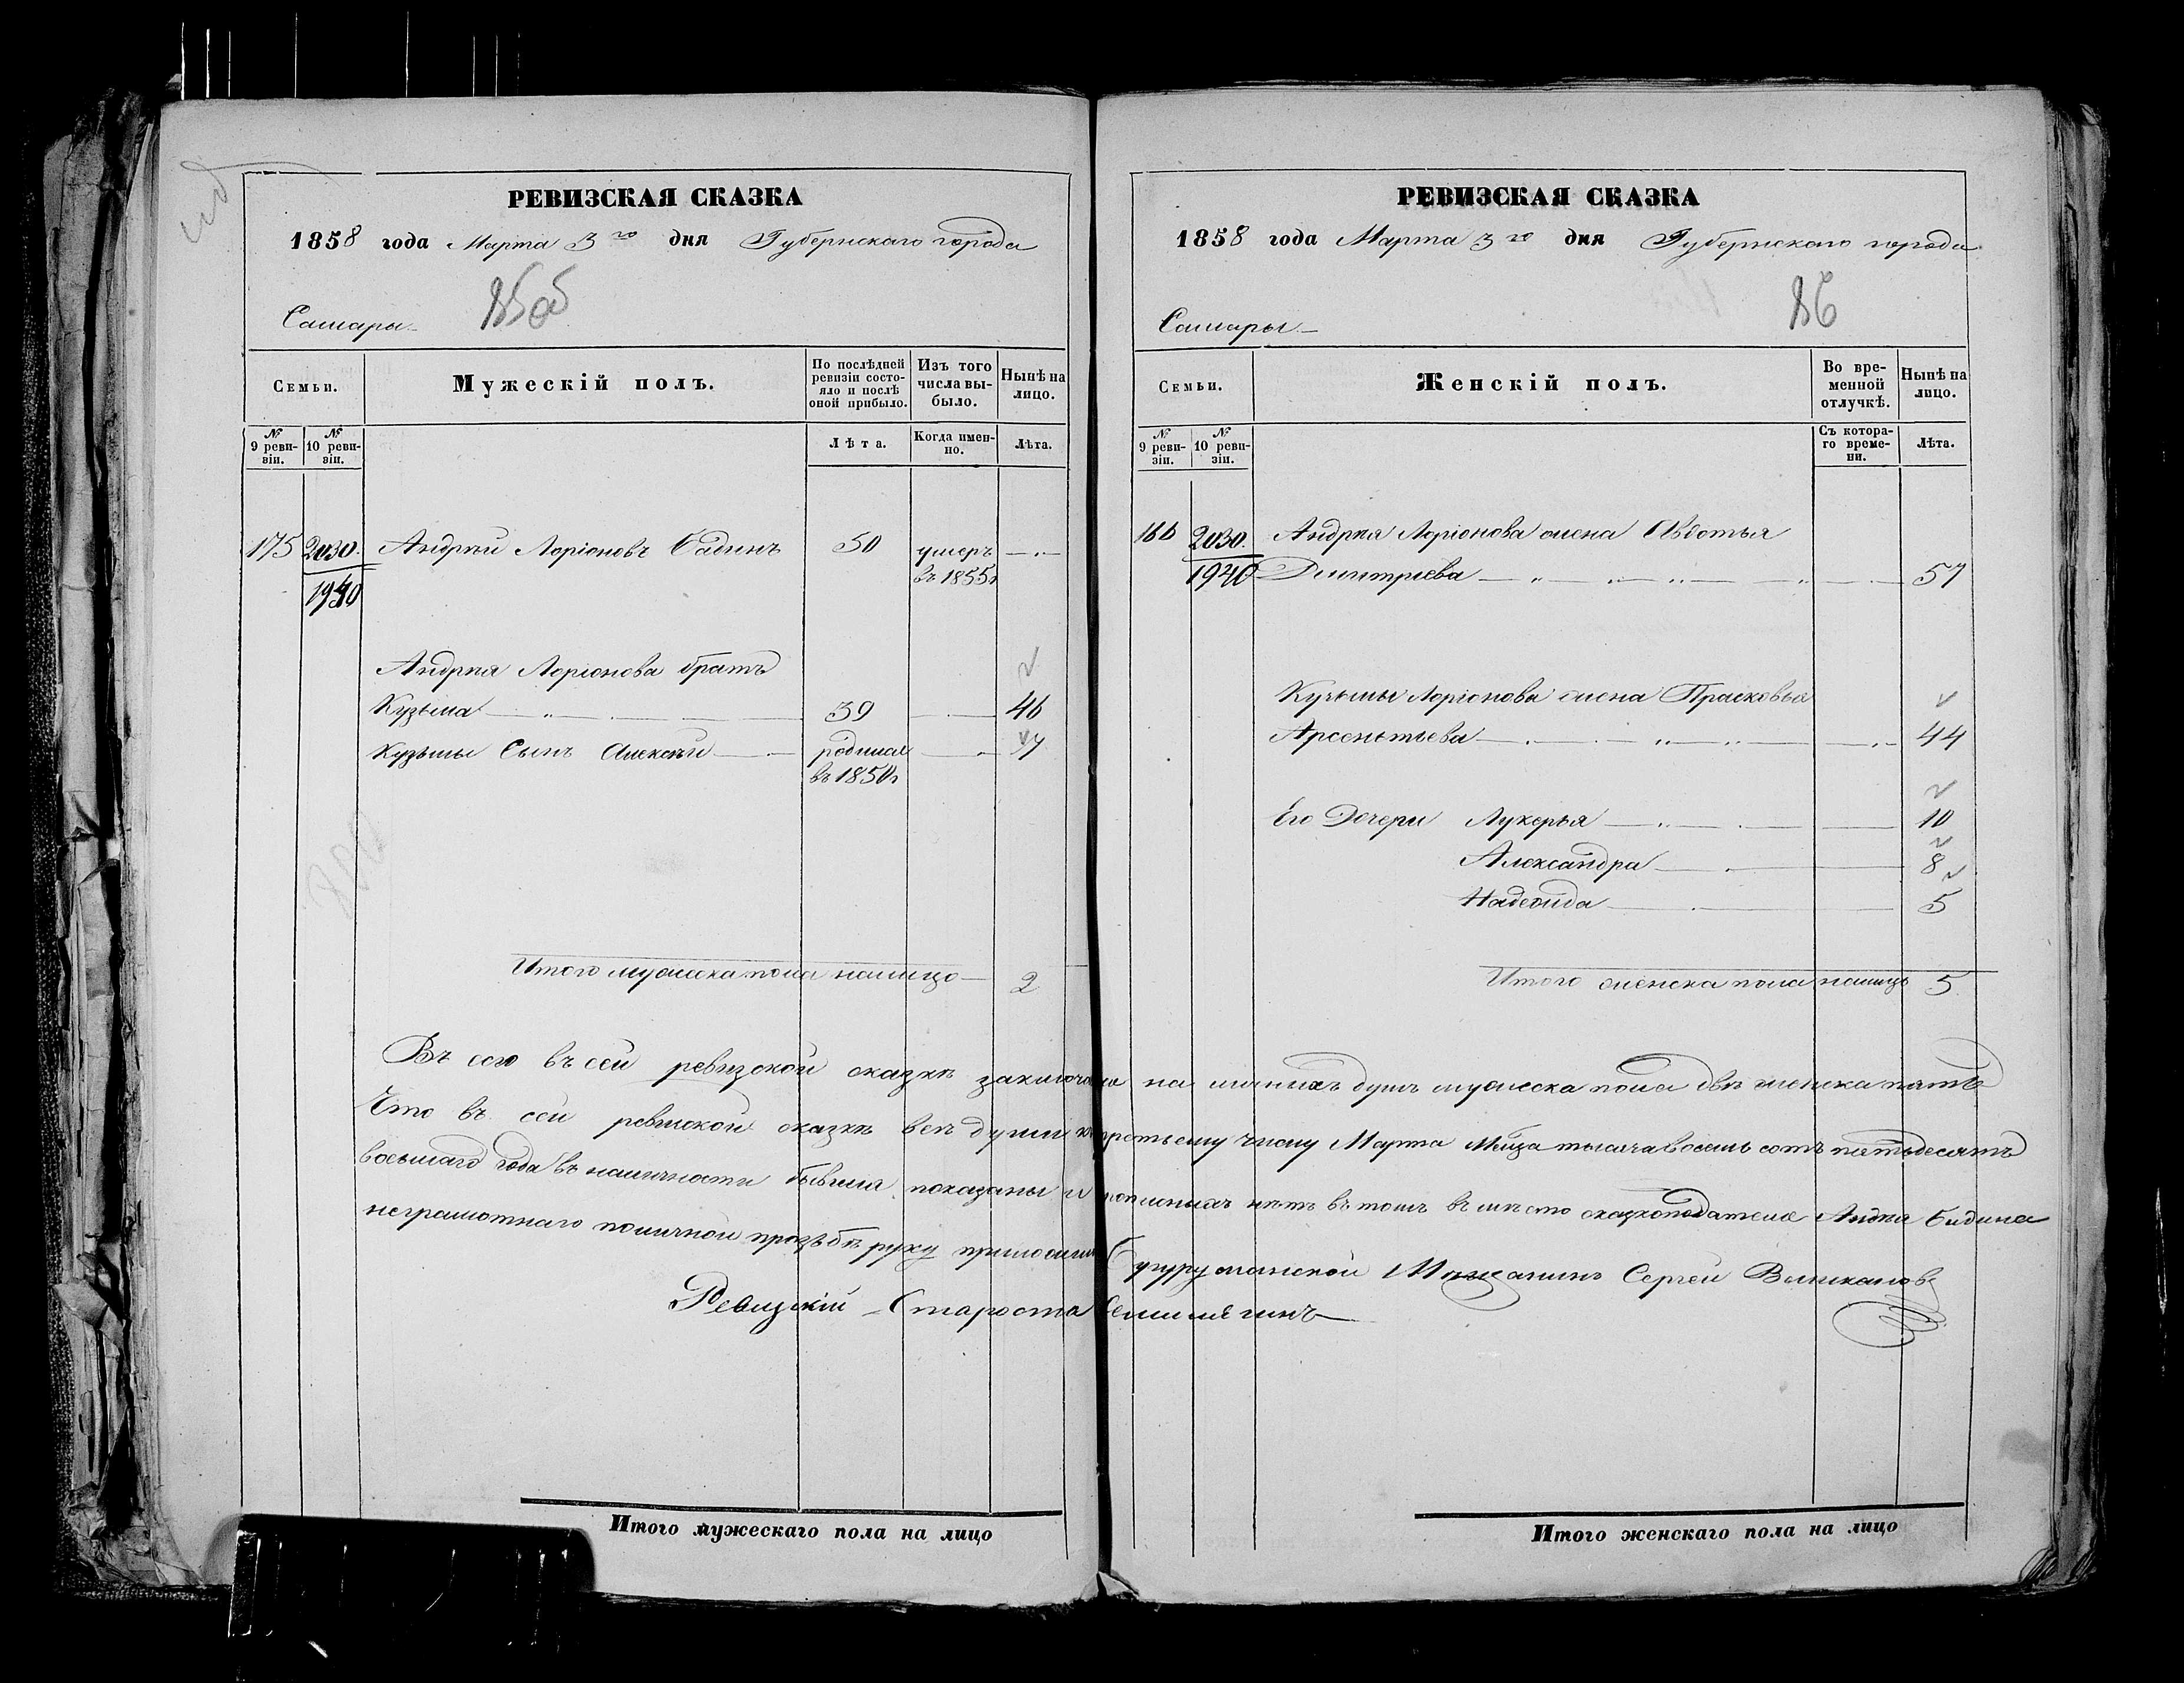 РЕВИЗСКАЯ СКАЗКА
1858 года Марта 3го дня Губернскаго города
Самары
85об
Семьи.
Мужескій полъ.
По послѣдней ревизіи состояло и послѣ оной прибыло.
Изъ того числа выбыло.
Нынѣ на лицо.
№ 9 ревизіи.
№ 10 ревизіи.
Лѣта.
Когда именно.
Лѣта.
175 2030. Андрѣй Ларіоновъ 50 умеръ
1940 въ 1855г
Андрея Ларіонова братъ
Кузьма 39 46
Кузьмы Сынъ Алексѣй родился 7
въ 1850г
Итого мужеска пола налицо 2
РЕВИЗСКАЯ СКАЗКА
1858 года Марта 3го дня Губернскаго города
Самары
86
Семьи.
Женскій полъ.
Во временной отлучкѣ.
Нынѣ на лицо.
№ 9 ревизіи.
№ 10 ревизіи.
Съ котораго времени.
Лѣта.
2030. Андрея Ларіонова жена Авдотья
1940 Дмитріева 57
Кузьмы Ларіонова жена Прасковья
Арсентьева 44
Его Дочери Лукерья 10
Александра 8
Надежда 5
Итого женска пола налицо 5
въ сей ревизской сказкѣ на душъ мужеска пола двѣ женска пять
Что въ сей ревизской сказкѣ всѣ души къ третьему числу Марта Мѣца тысяча восемь сотъ пятьдесятъ
восьмаго года въ наличности бывшія показаны и нѣтъ въ томъ вмѣсто сказкоподателя
неграмотнаго по личной прозьбѣ руку приложилъ Бугурусланской Мѣщанинъ Сергей
Ревизкій Староста
Итого мужескаго пола на лицо
Итого женскаго пола на лицо